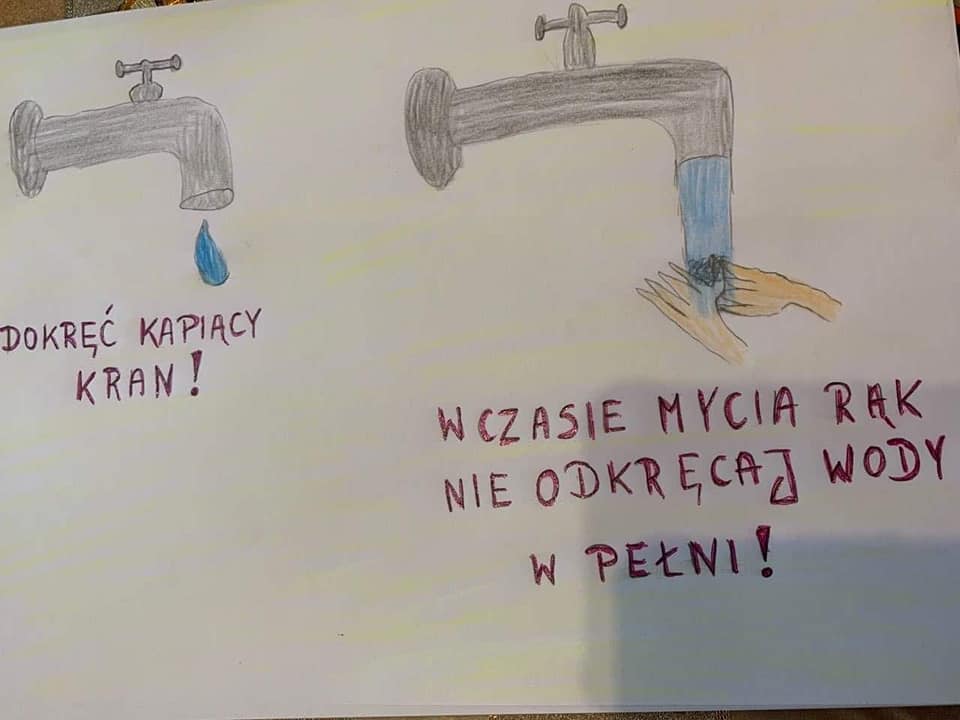 DOKRĘĆ KAPIĄCY
KRAN!
W CZASIE MYCIA RĄK
NIE ODKRĘCAJ WODY
W PEŁNI!